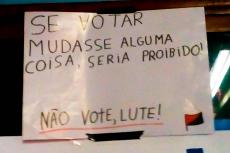 SE VOTAR
MUDASSE ALGUMA
COISA, SERIA PROIBIDO!
NÃO VOTE, LUTE!